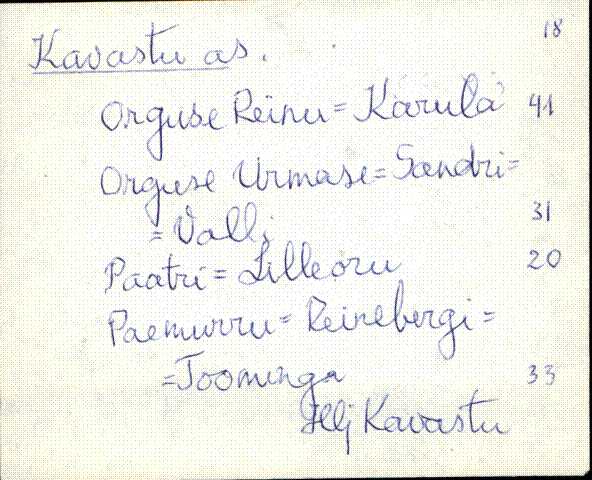 18
Kavastu as.
Orguse Reinu = Karula 41
Orguse Urmase = Sandri =
= Valli 31
Paatri = Lilleoru 20
Paemurru = Reinebergi =
= Toominga 33
Hlj Kavastu